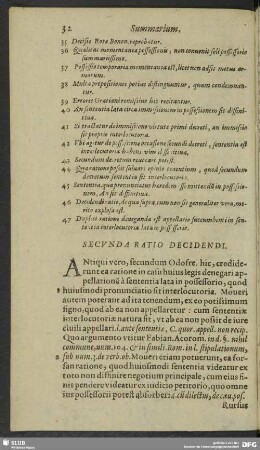 32 Summarium.
35 Decisio Rotæ Bonon. reprobatur.
36 Qualitas momentanea possessoria, non conuenit soli possessorio
summarissimo.
37 Possessio temporaria momentanea est, licet non adsit metus ar-
morum.
38 Multa propositiones potius distinguuntur, quam condemnan-
tur.
39 Errores Gratiani remissiue hic recitatur.
40 An sententia lata circa immissionem in possessionem sit diffini-
tiua.
41 Si tractatur de immissione virtute primi decreti, an immissio
sit proprie interlocutoria.
42 Vbi agitur de possessione ex secundi decreti, sententia est
interlocutoria habens vim
43 Secundum decretum reuocari potest.
44 Quaratione possit saluari opinio tenentium, quod secundum
decretum sententia sit interlocutoria.
45 Sententia, qua pronuntiatur hæredem esse mittendū in possessio-
nem, An sit diffinitiua.
46 Decidendi ratio, de qua supra, cum non sit generaliter vera, me-
rito explosa est.
47 Duplex ratione deneganda est appellatio succumbenti in senten-
tia lata interlocutoria lata in possessorio.
SECVNDA RATIO DECIDENDI.
ANtiqui vero, secundum Odofre. hic, credide-
runt ea ratione in casu huius legis denegari ap-
pellationē à sententia lata in possessorio, quod
huiusmodi pronunciatio sit interlocutoria. Moueri
autem poterant ad ita tenendum, ex eo potissimum
signo, quod ab ea non appellaretur: cum sententiæ
interlocutoriæ natura sit, vt ab ea non possit de iure
ciuili appellari. l. ante sententiæ, C. quor. appell. non recip.
Quo argumento vtitur Fabian. Acorom. in d. §. nihil
commune, num. 104. & in simili Rom. in l. stipulationum,
sub num. 3. de verb. ob. Moueri etiam potuerunt, ea for-
san ratione, quod huiusmodi sententia videatur ex
toto non diffinire negotium principale, cum eius fi-
nis pendere videatur ex iudicio petitorio, quo omne
ius possessorij potest absorberi.
Rursus
SLUB
DFG